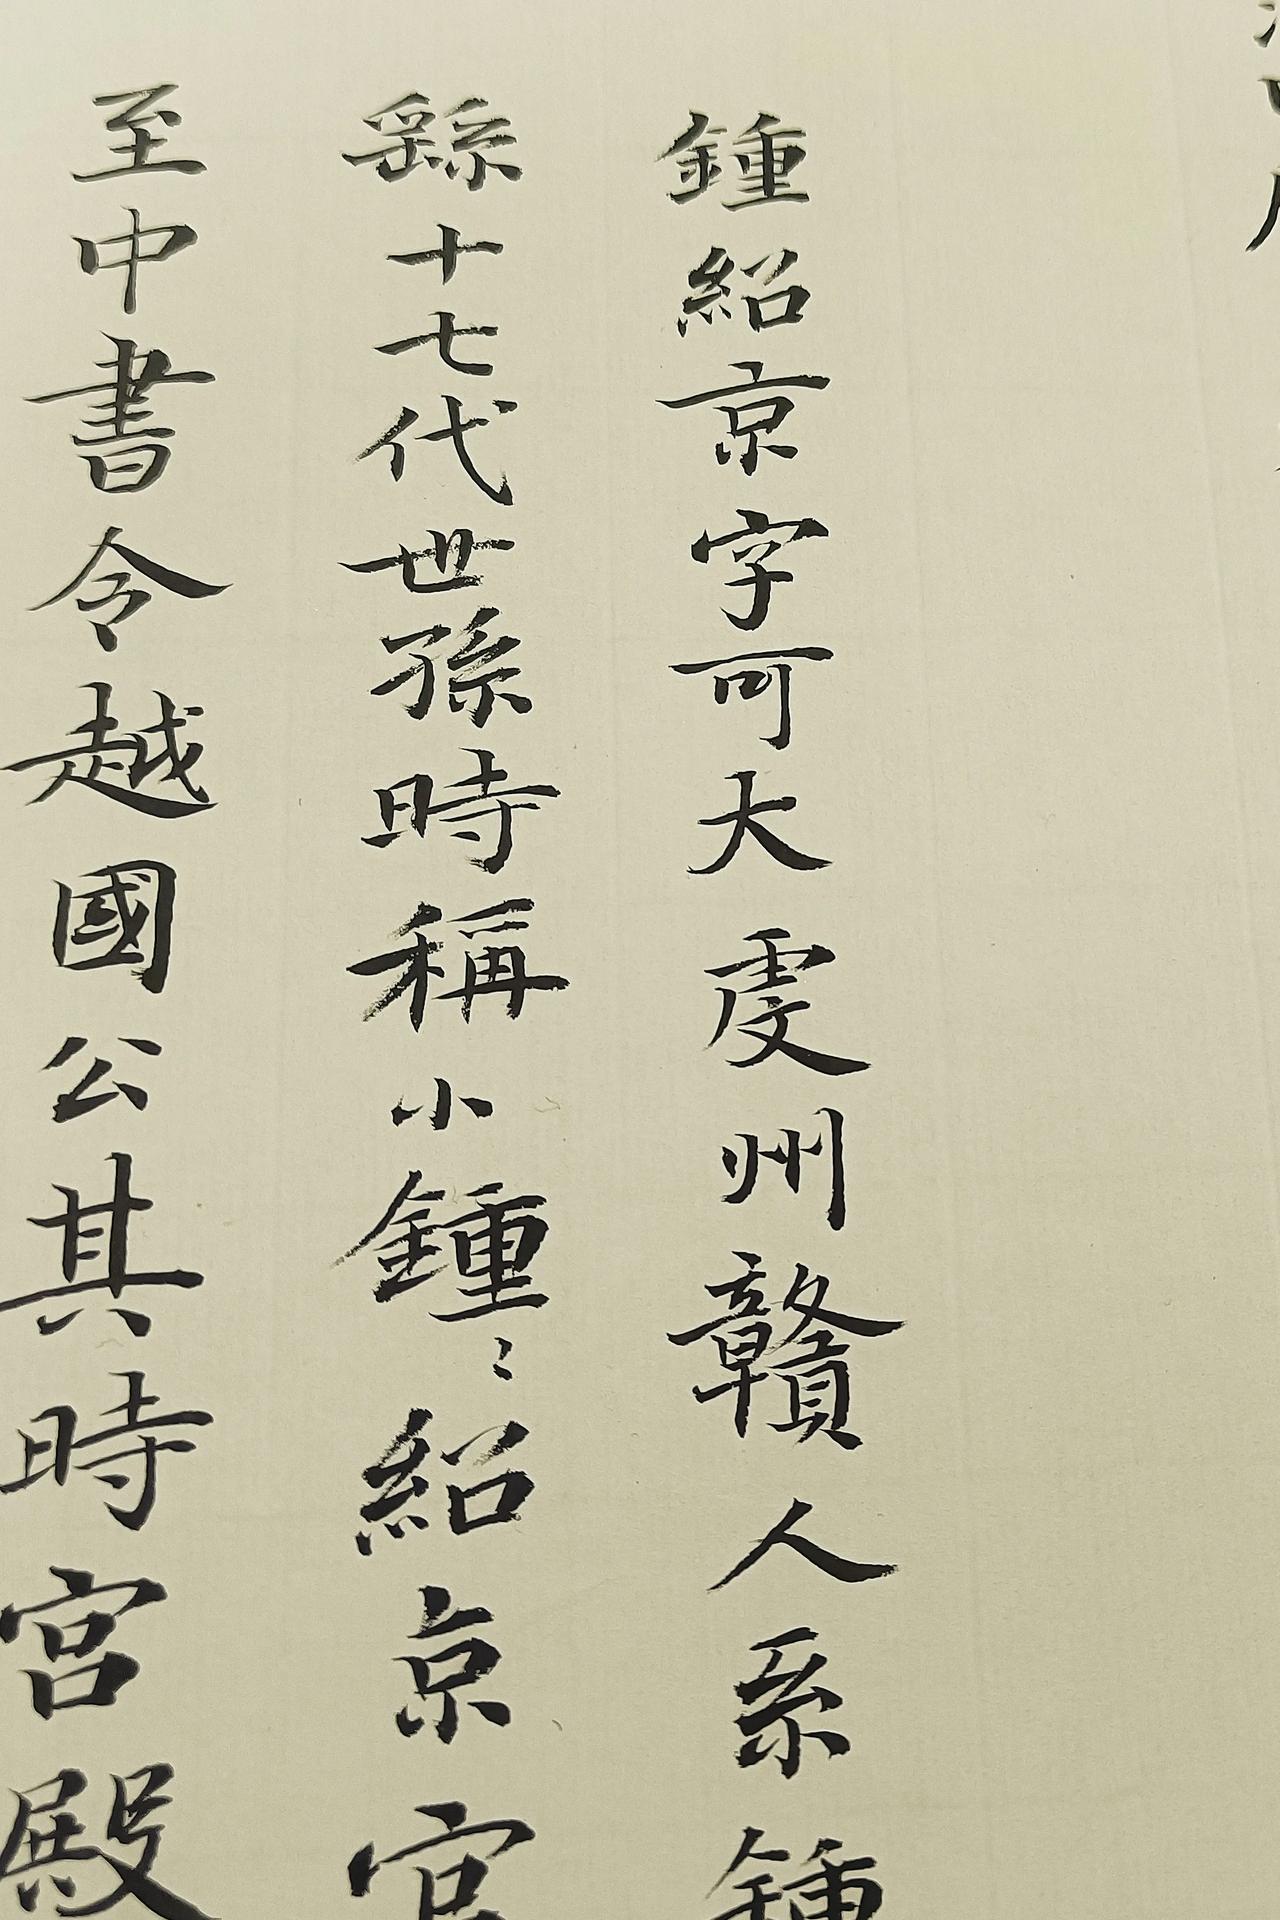 鍾紹京字可大虔州贛人系鍾
繇十七代世孫時稱小鍾〻紹京官
至中書令越國公其時宮殿